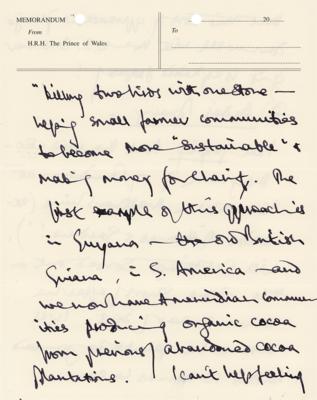 MEMORANDUM
From
H.R.H. The Prince of Wales
20
To
"killing two birds with one stone –
helping small farmer communities
to become more "sustainable" &
making money for charity. The
first example of this approach is
in Guyana – the old British
Guiana, in S. America – and
we now have Amerindian commun-
ities producing organic cocoa
from previously abandoned cocoa
plantations. I can't help feeling